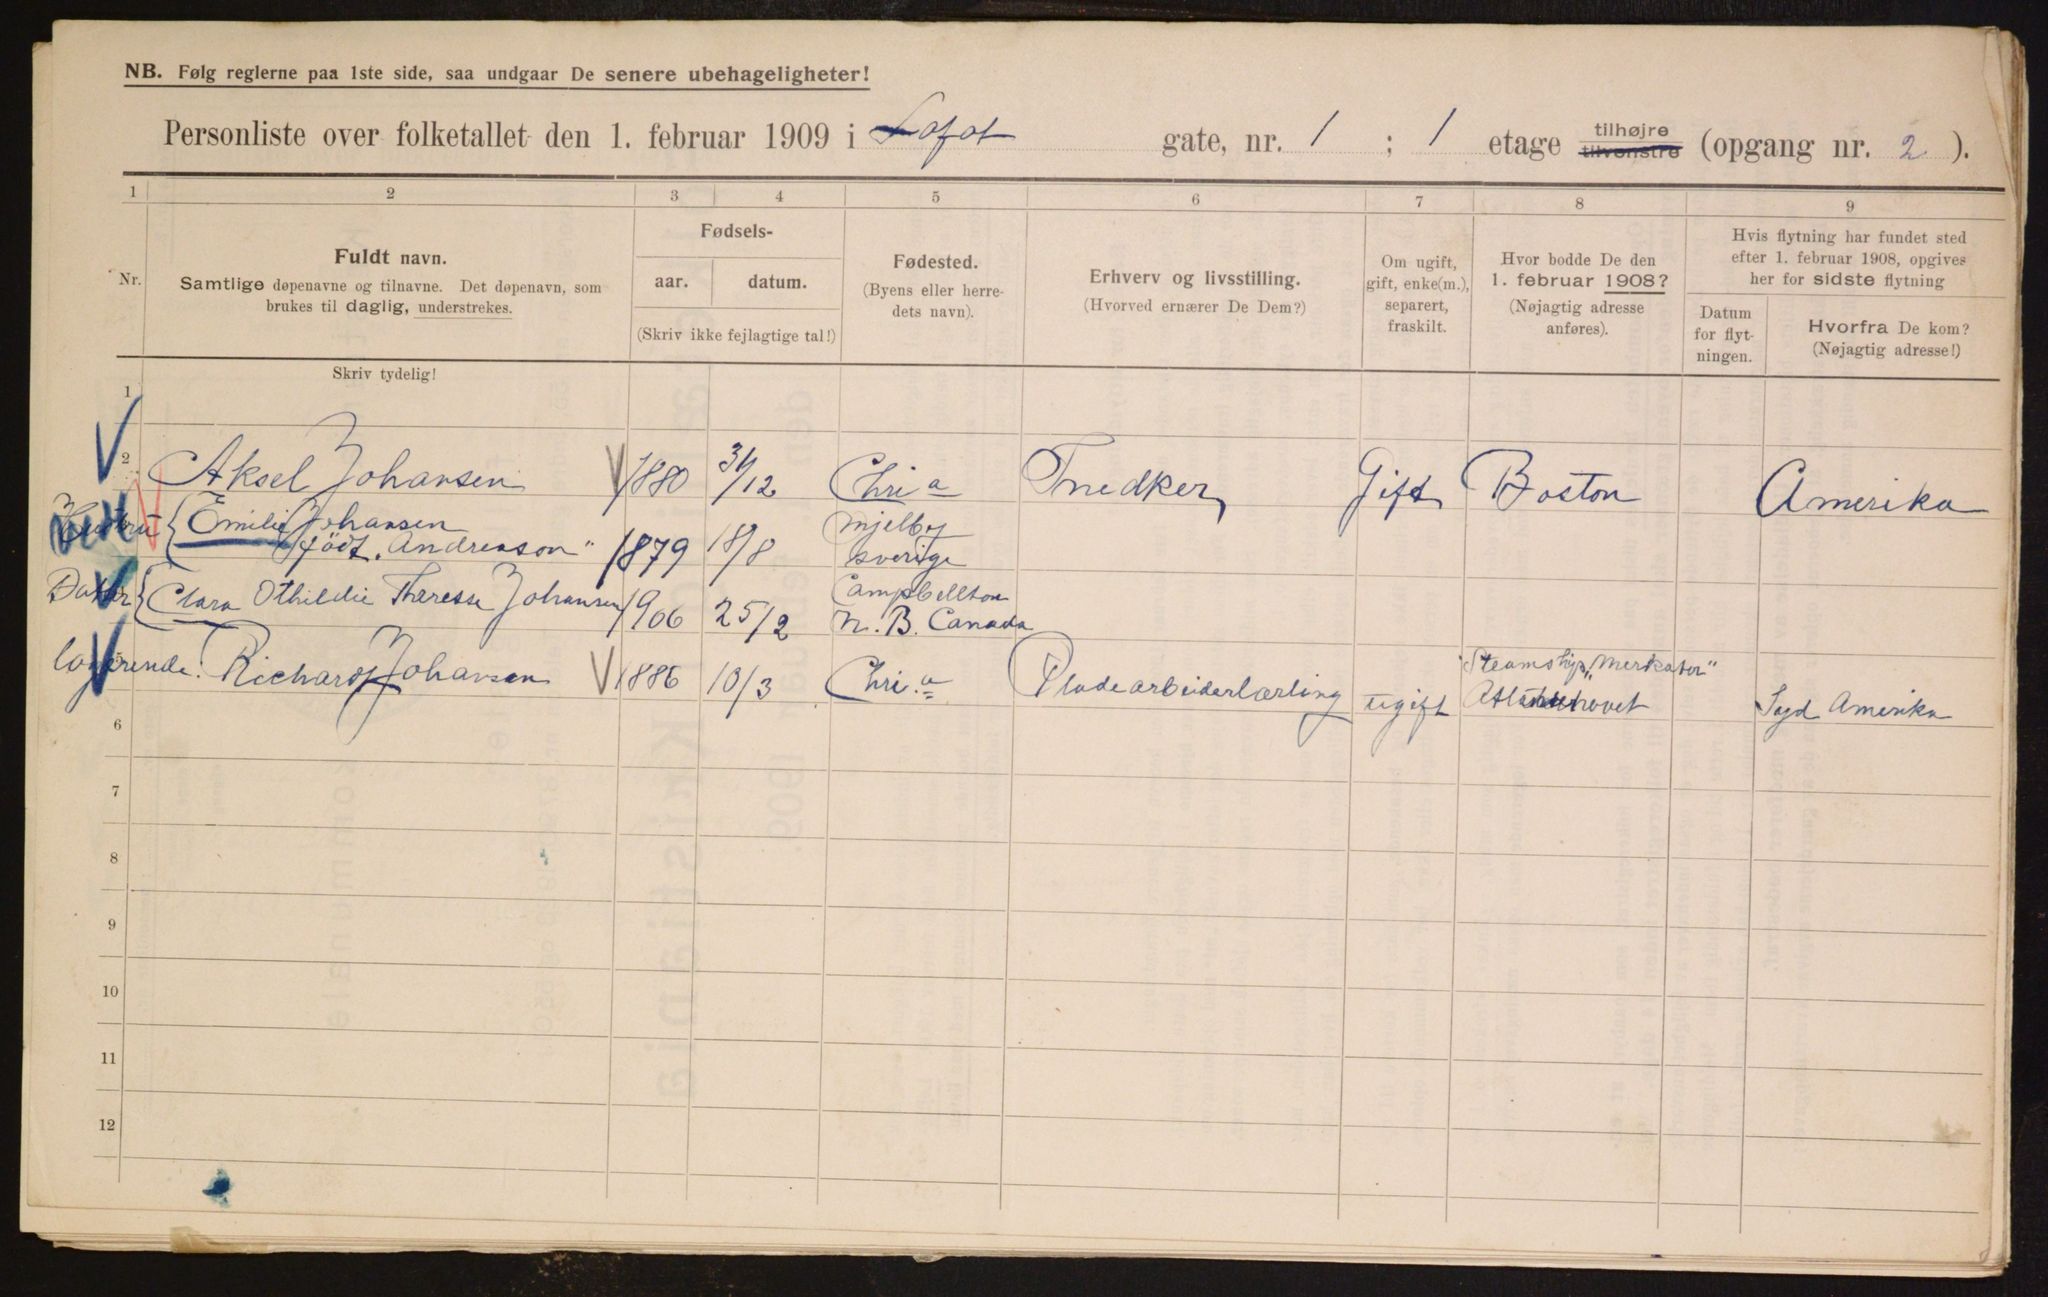 NB. Følg reglerne paa 1ste side, saa undgaar De senere ubehageligheter!
Personliste over folketallet den 1. februar 1909 i Lofot gate, nr. 1 ; 1 etage tilhøjre tilvenstre (opgang nr. 2 ).
1 2 3 4 5 6 7 8 9
Nr.
Fuldt navn.
Samtlige døpenavne og tilnavne. Det døpenavn, som
brukes til daglig, understrekes.
Fødsels-
aar. datum.
(Skriv ikke fejlagtige tal!)
Fødested.
(Byens eller herre-
dets navn).
Erhverv og livsstilling.
(Hvorved ernærer De Dem?)
Om ugift,
gift, enke(m.),
separert,
fraskilt.
Hvor bodde De den
1. februar 1908?
(Nøjagtig adresse
anføres).
Hvis flytning har fundet sted
efter 1. februar 1908, opgives
her for sidste flytning
Datum
for flyt-
ningen.
Hvorfra De kom?
(Nøjagtig adresse!)
Skriv tydelig!
1
2 Aksel Johansen 1880 31/12 Chri a Snedker Gift Boston Amerika
Hustru { Emilie Johansen
født „Andreason" 1879 18/8 Mjelby
sverige
Datter { Clara Othildie Therese Johansen 1906 25/2 Campbellton
N. B. Canada
logerende: Richard Johansen 1886 10/3 Chri. a Pladearbeiderlærling ugift Steamship „Merkator"
Syd Amerika
6
7
8
9
10
11
12